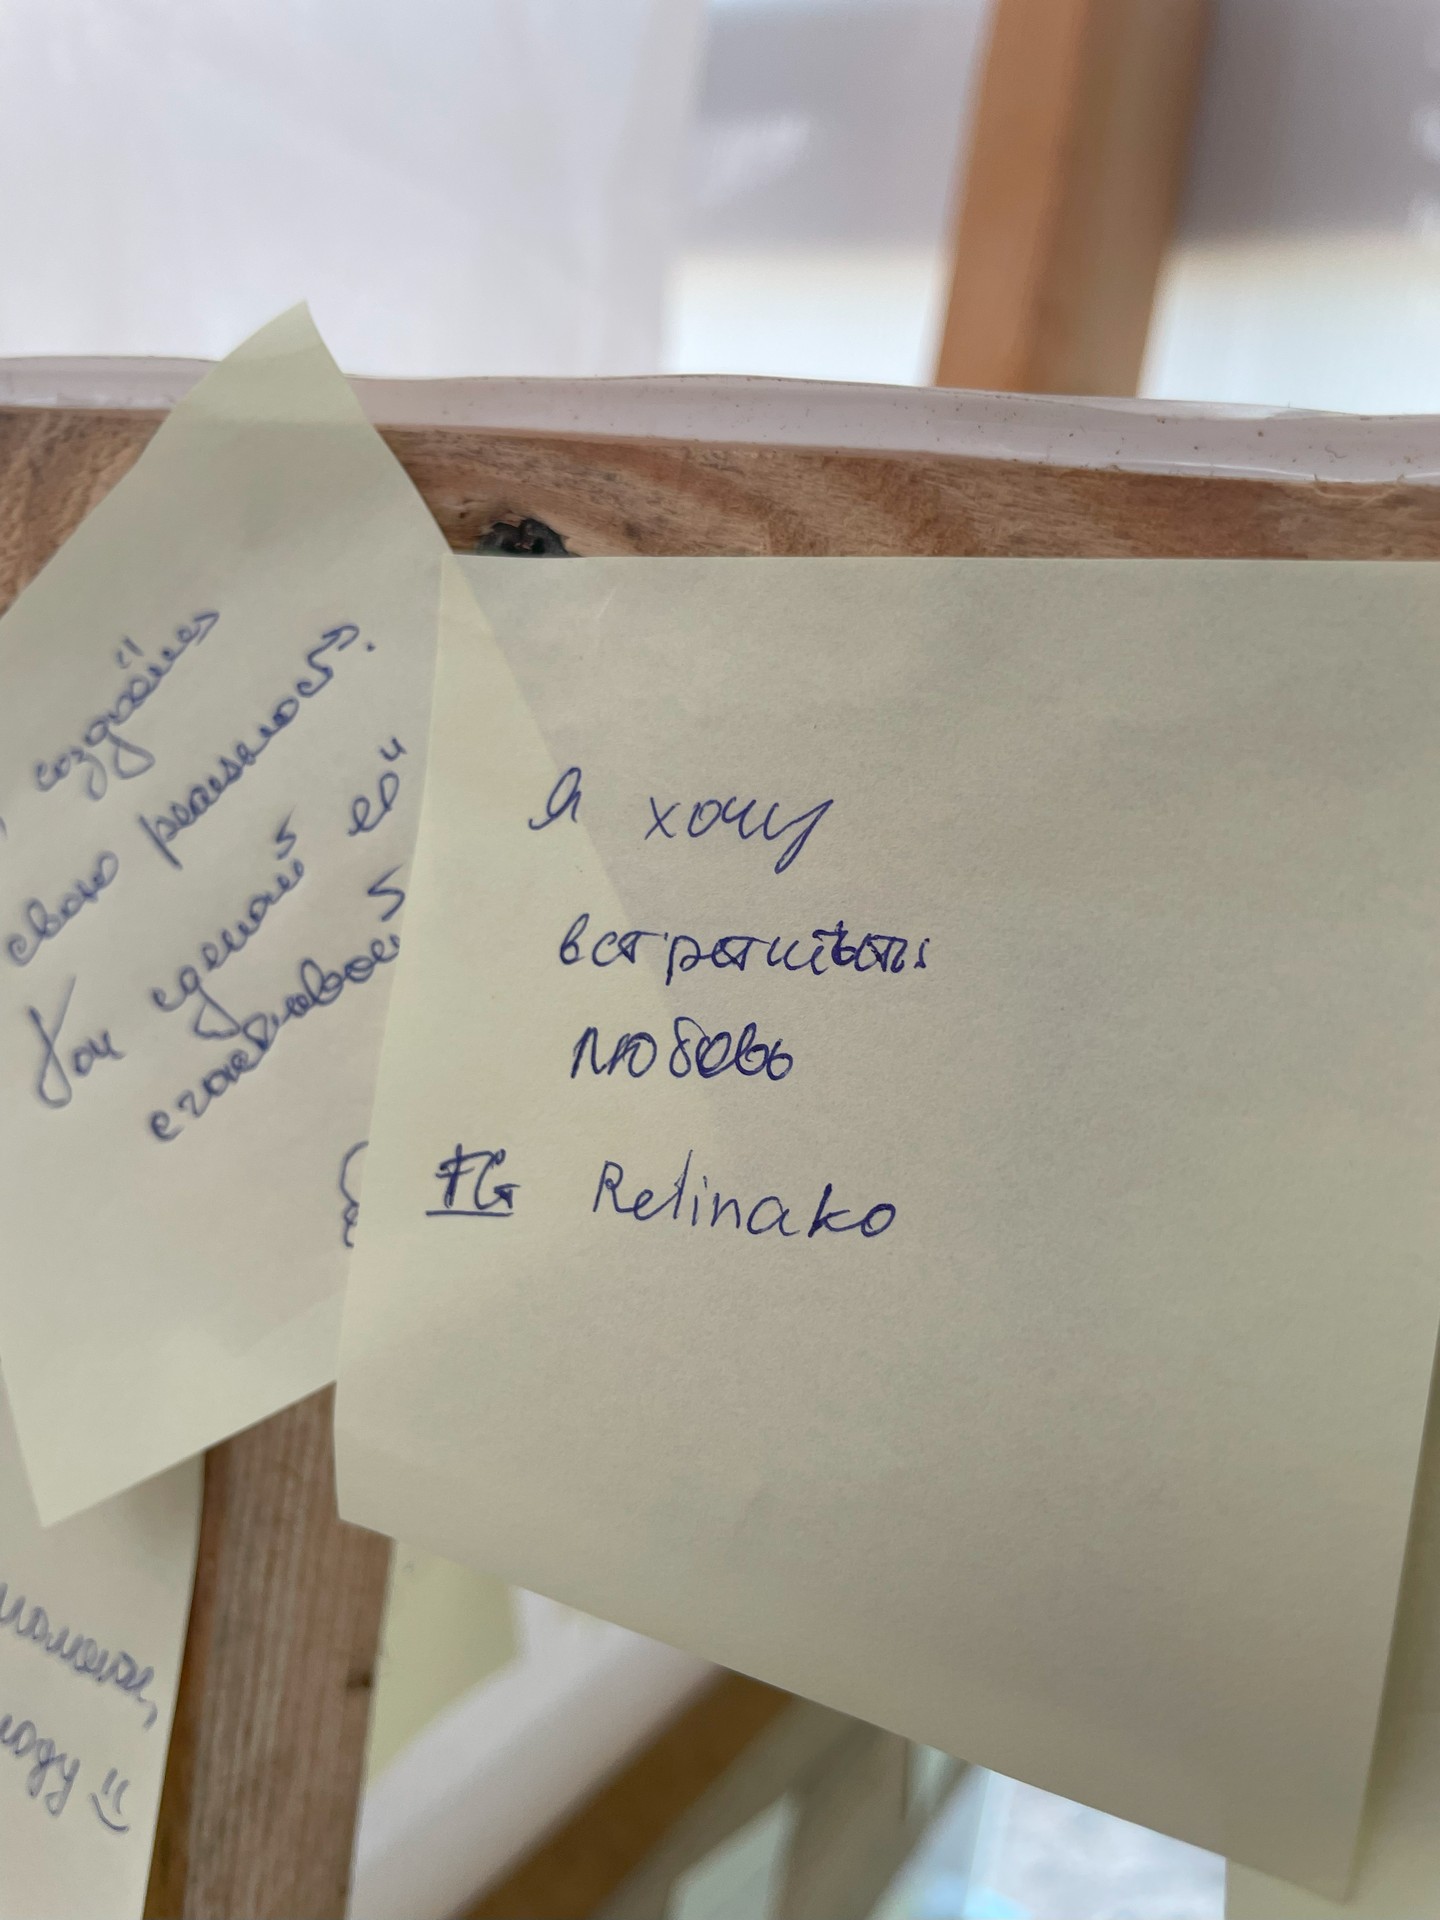 создаёшь
свою реальность.
Так сделай её
счастливой
Я хочу
встретить
любовь
IG Relinako